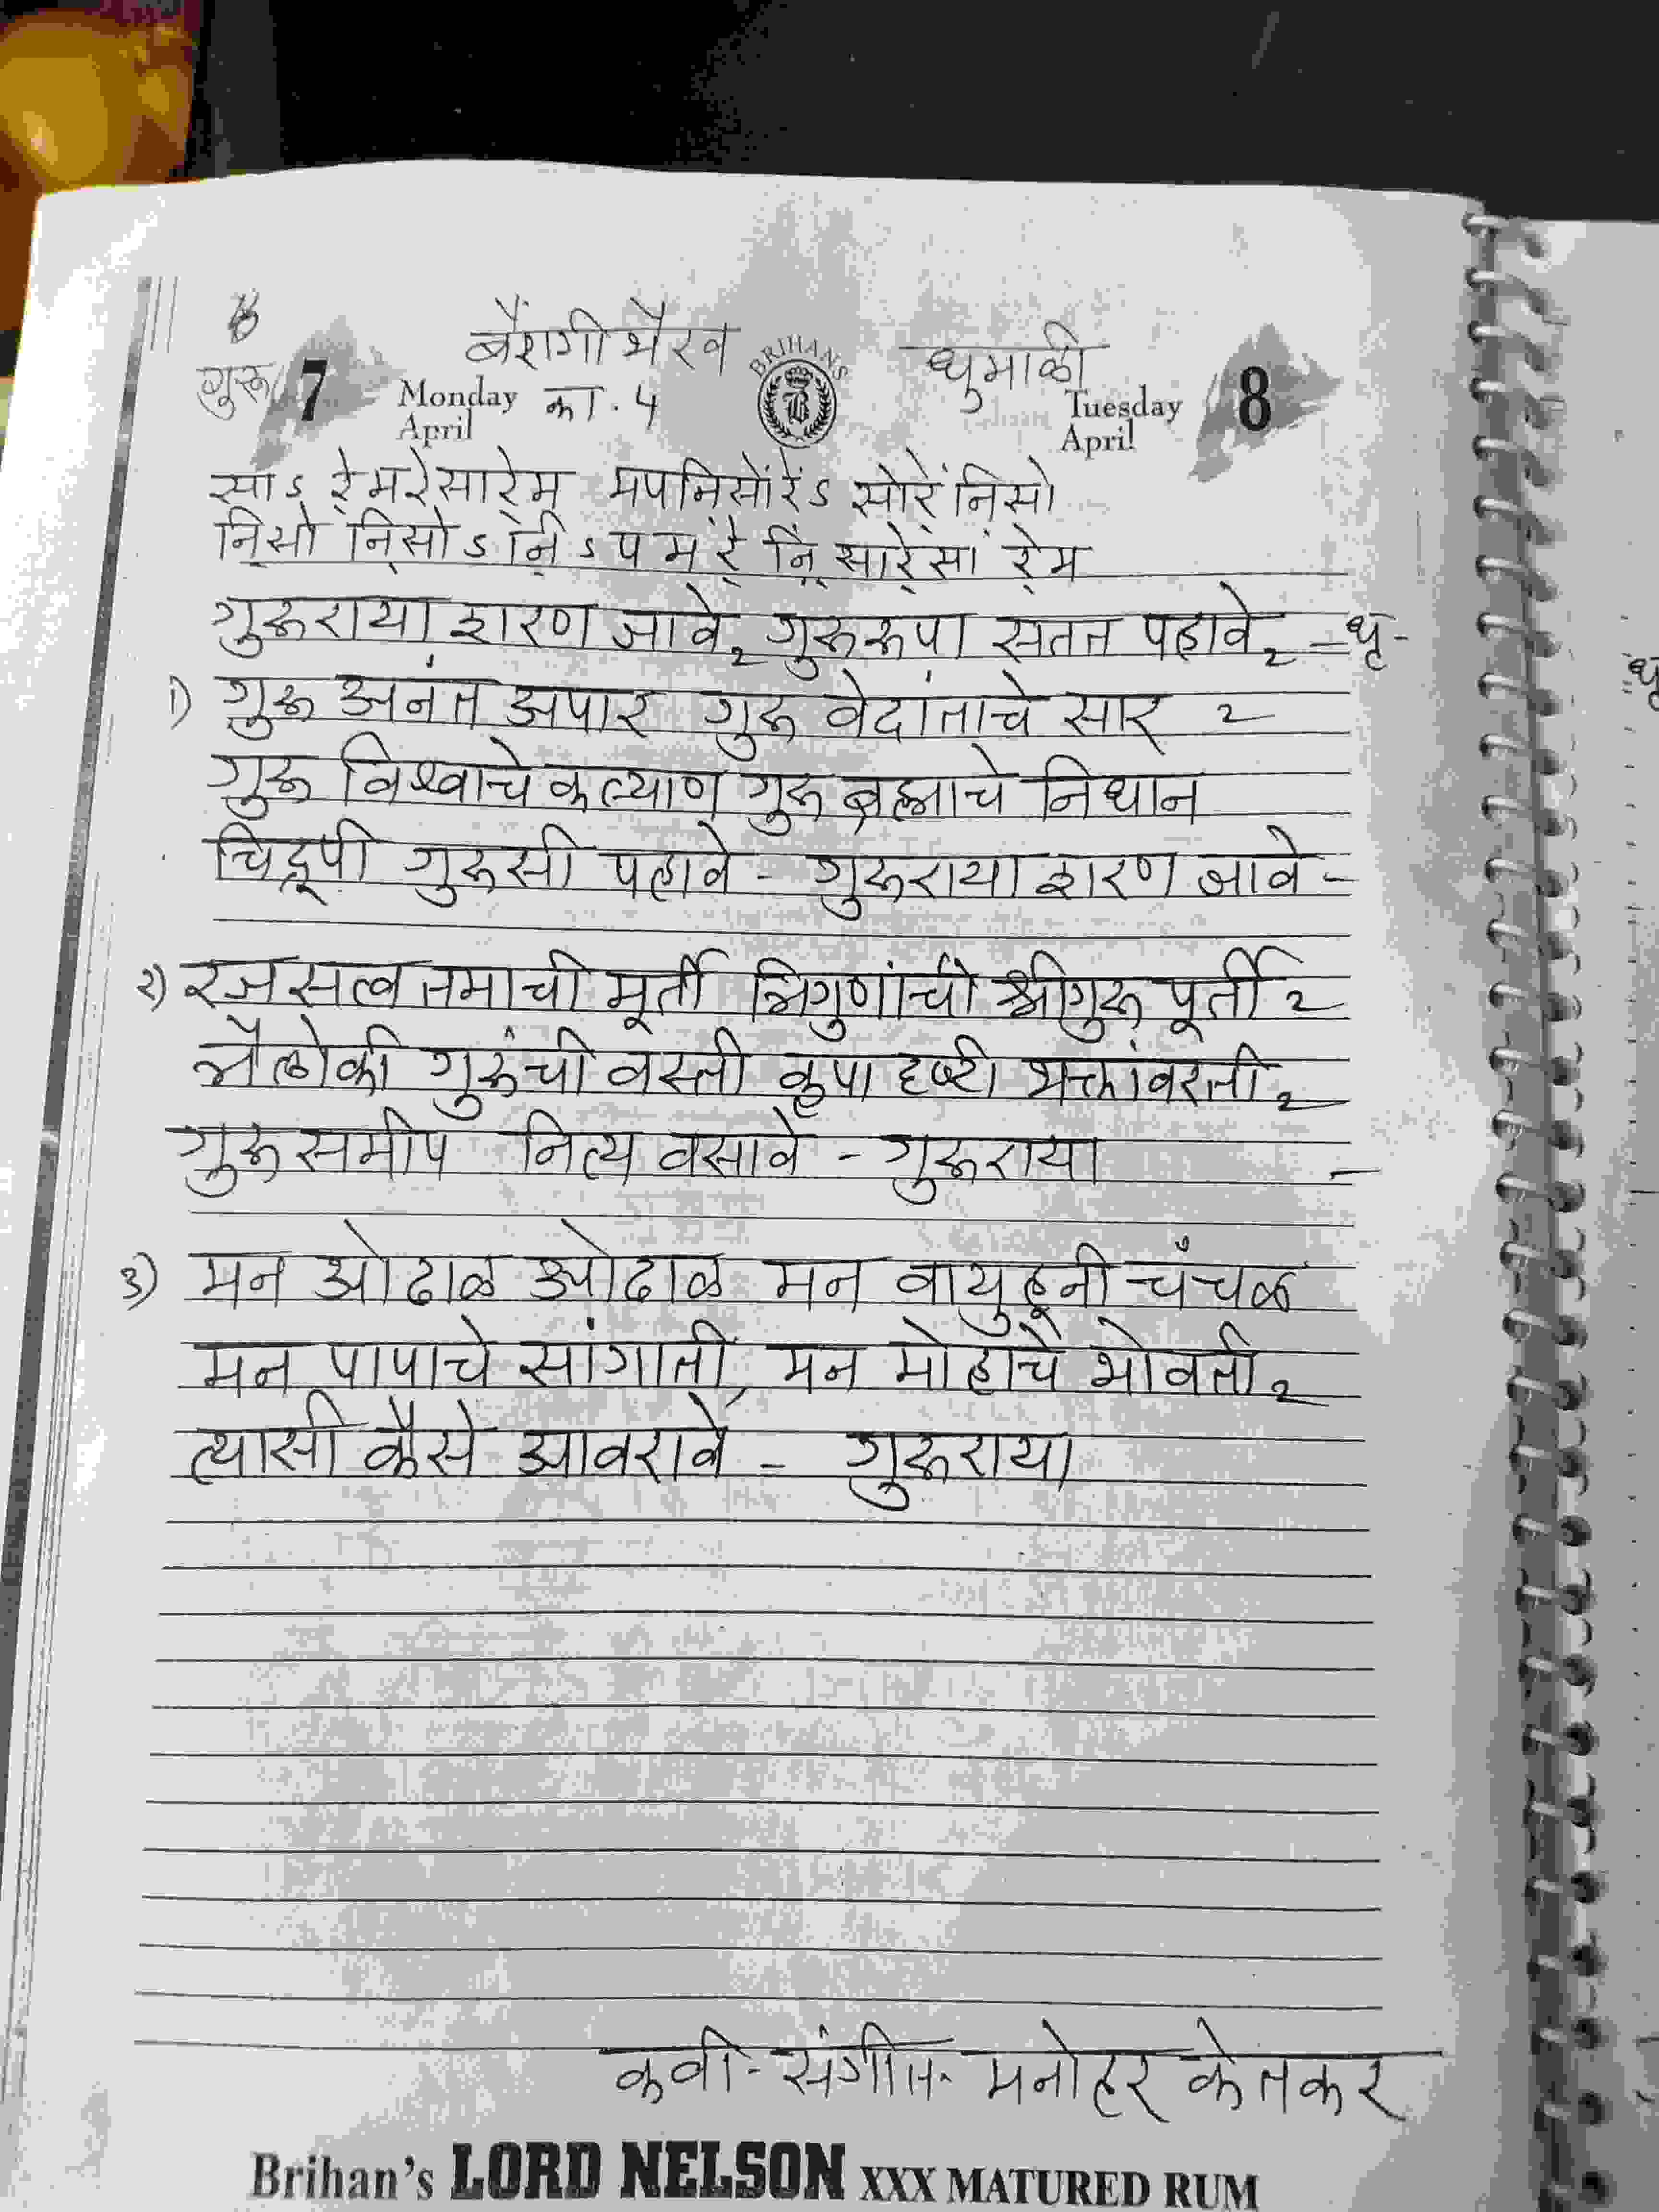 बैरागी भैरव BRIHANS धुमाळी
गुरू 7 Monday का. 4 Tuesday 8
April April
साऽ रे॒मरे॒सारे॒म मपनि॒सांरें॒ऽ सांरें॒नि॒सां
नि॒सां नि॒सांऽ नि॒ऽ प म रे॒ नि॒ सारे॒सा रे॒म
गुरूराया शरण जावे२ गुरूरूपा सतत पहावे२ - धृ-
१) गुरू अनंत अपार गुरू वेदांताचे सार २
गुरू विश्वाचे कल्याण गुरू ब्रह्माचे निधान
चिद्रूपी गुरूसी पहावे - गुरूराया शरण जावे -
२) रज सत्व तमाची मूर्ती त्रिगुणांची श्रीगुरू पूर्ती २
त्रैलोकी गुरूंची वस्ती कृपा दृष्टी भक्तांवरती२
गुरू समीप नित्य वसावे - गुरूराया -
३) मन ओढाळ ओढाळ मन वायुहूनी चंचळ
मन पापाचे सांगाती, मन मोहाचे भोवती२
त्यासी कैसे आवरावे - गुरूराया
कवी - संगीत - मनोहर केतकर
Brihan's LORD NELSON XXX MATURED RUM